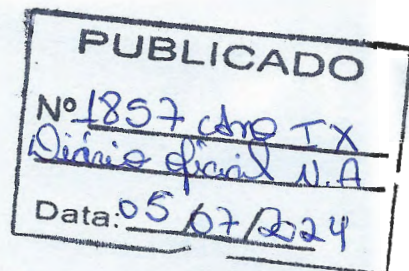 PUBLICADO
Nº 1857 Ano IX
Diário oficial N.A
Data: 05/07/2024